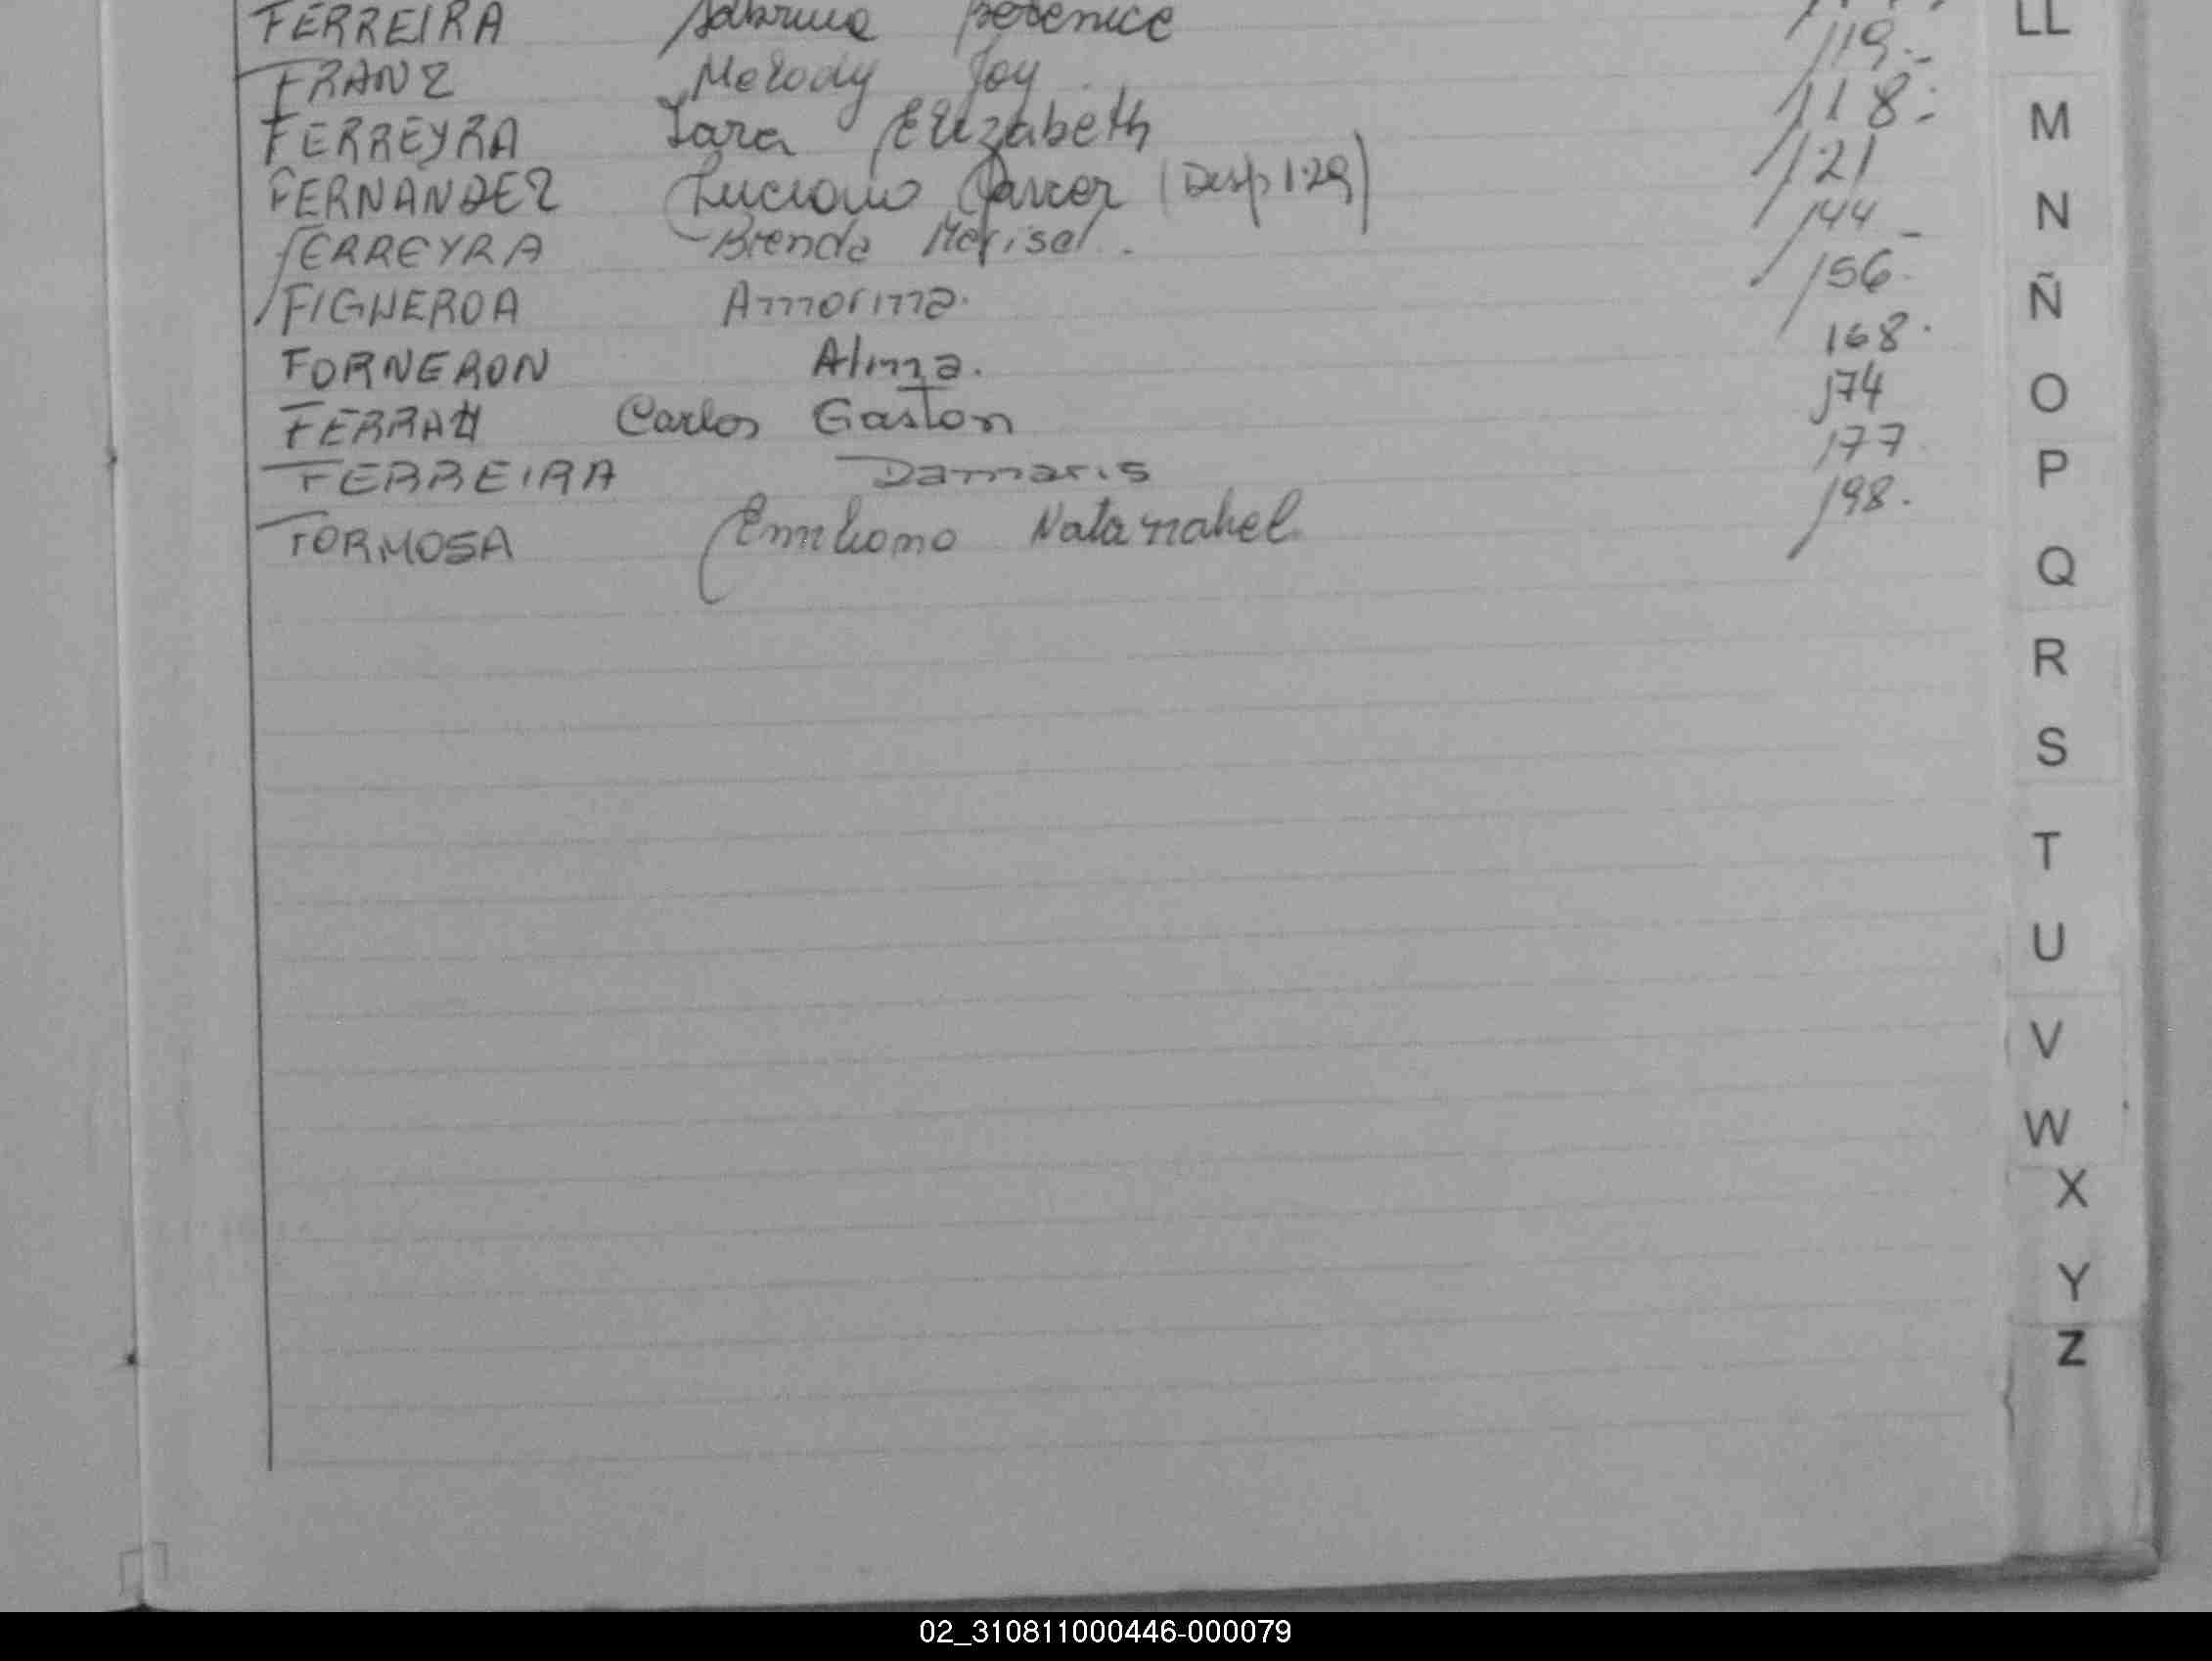 FERREIRA Sabrina Berenice
FRANZ Melody Joy 119.-
FERREYRA Iara Elizabeth 118.-
FERNANDEZ Luciano (Desp 129) 121
FERREYRA Brenda Marisel. 144
FIGUEROA 156
FORNERON Alma. 168.
FERRARI Carlos Gastón 174
FERREIRA Damaris 177
FORMOSA Emiliano Natanahel 198.
LL
M
N
Ñ
O
P
Q
R
S
T
U
V
W
X
Y
Z
02_310811000446-000079